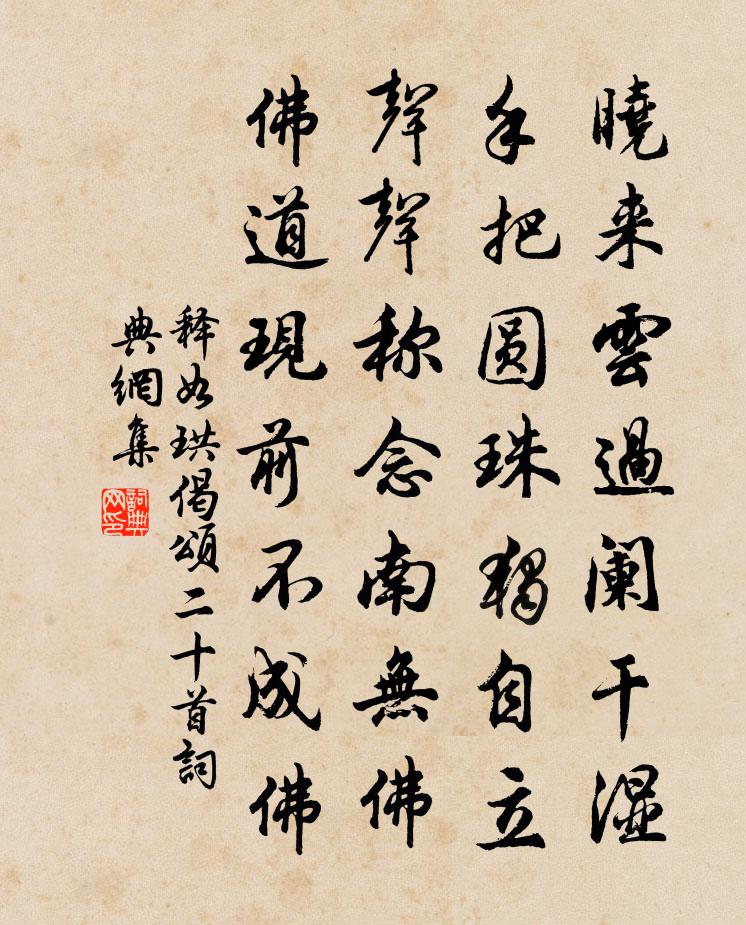 曉来雲過阑干濕
手把圆珠獨自立
聲聲称念南無佛
佛道現前不成佛
释如珙偈頌二十首詞
典網集
詞典网印